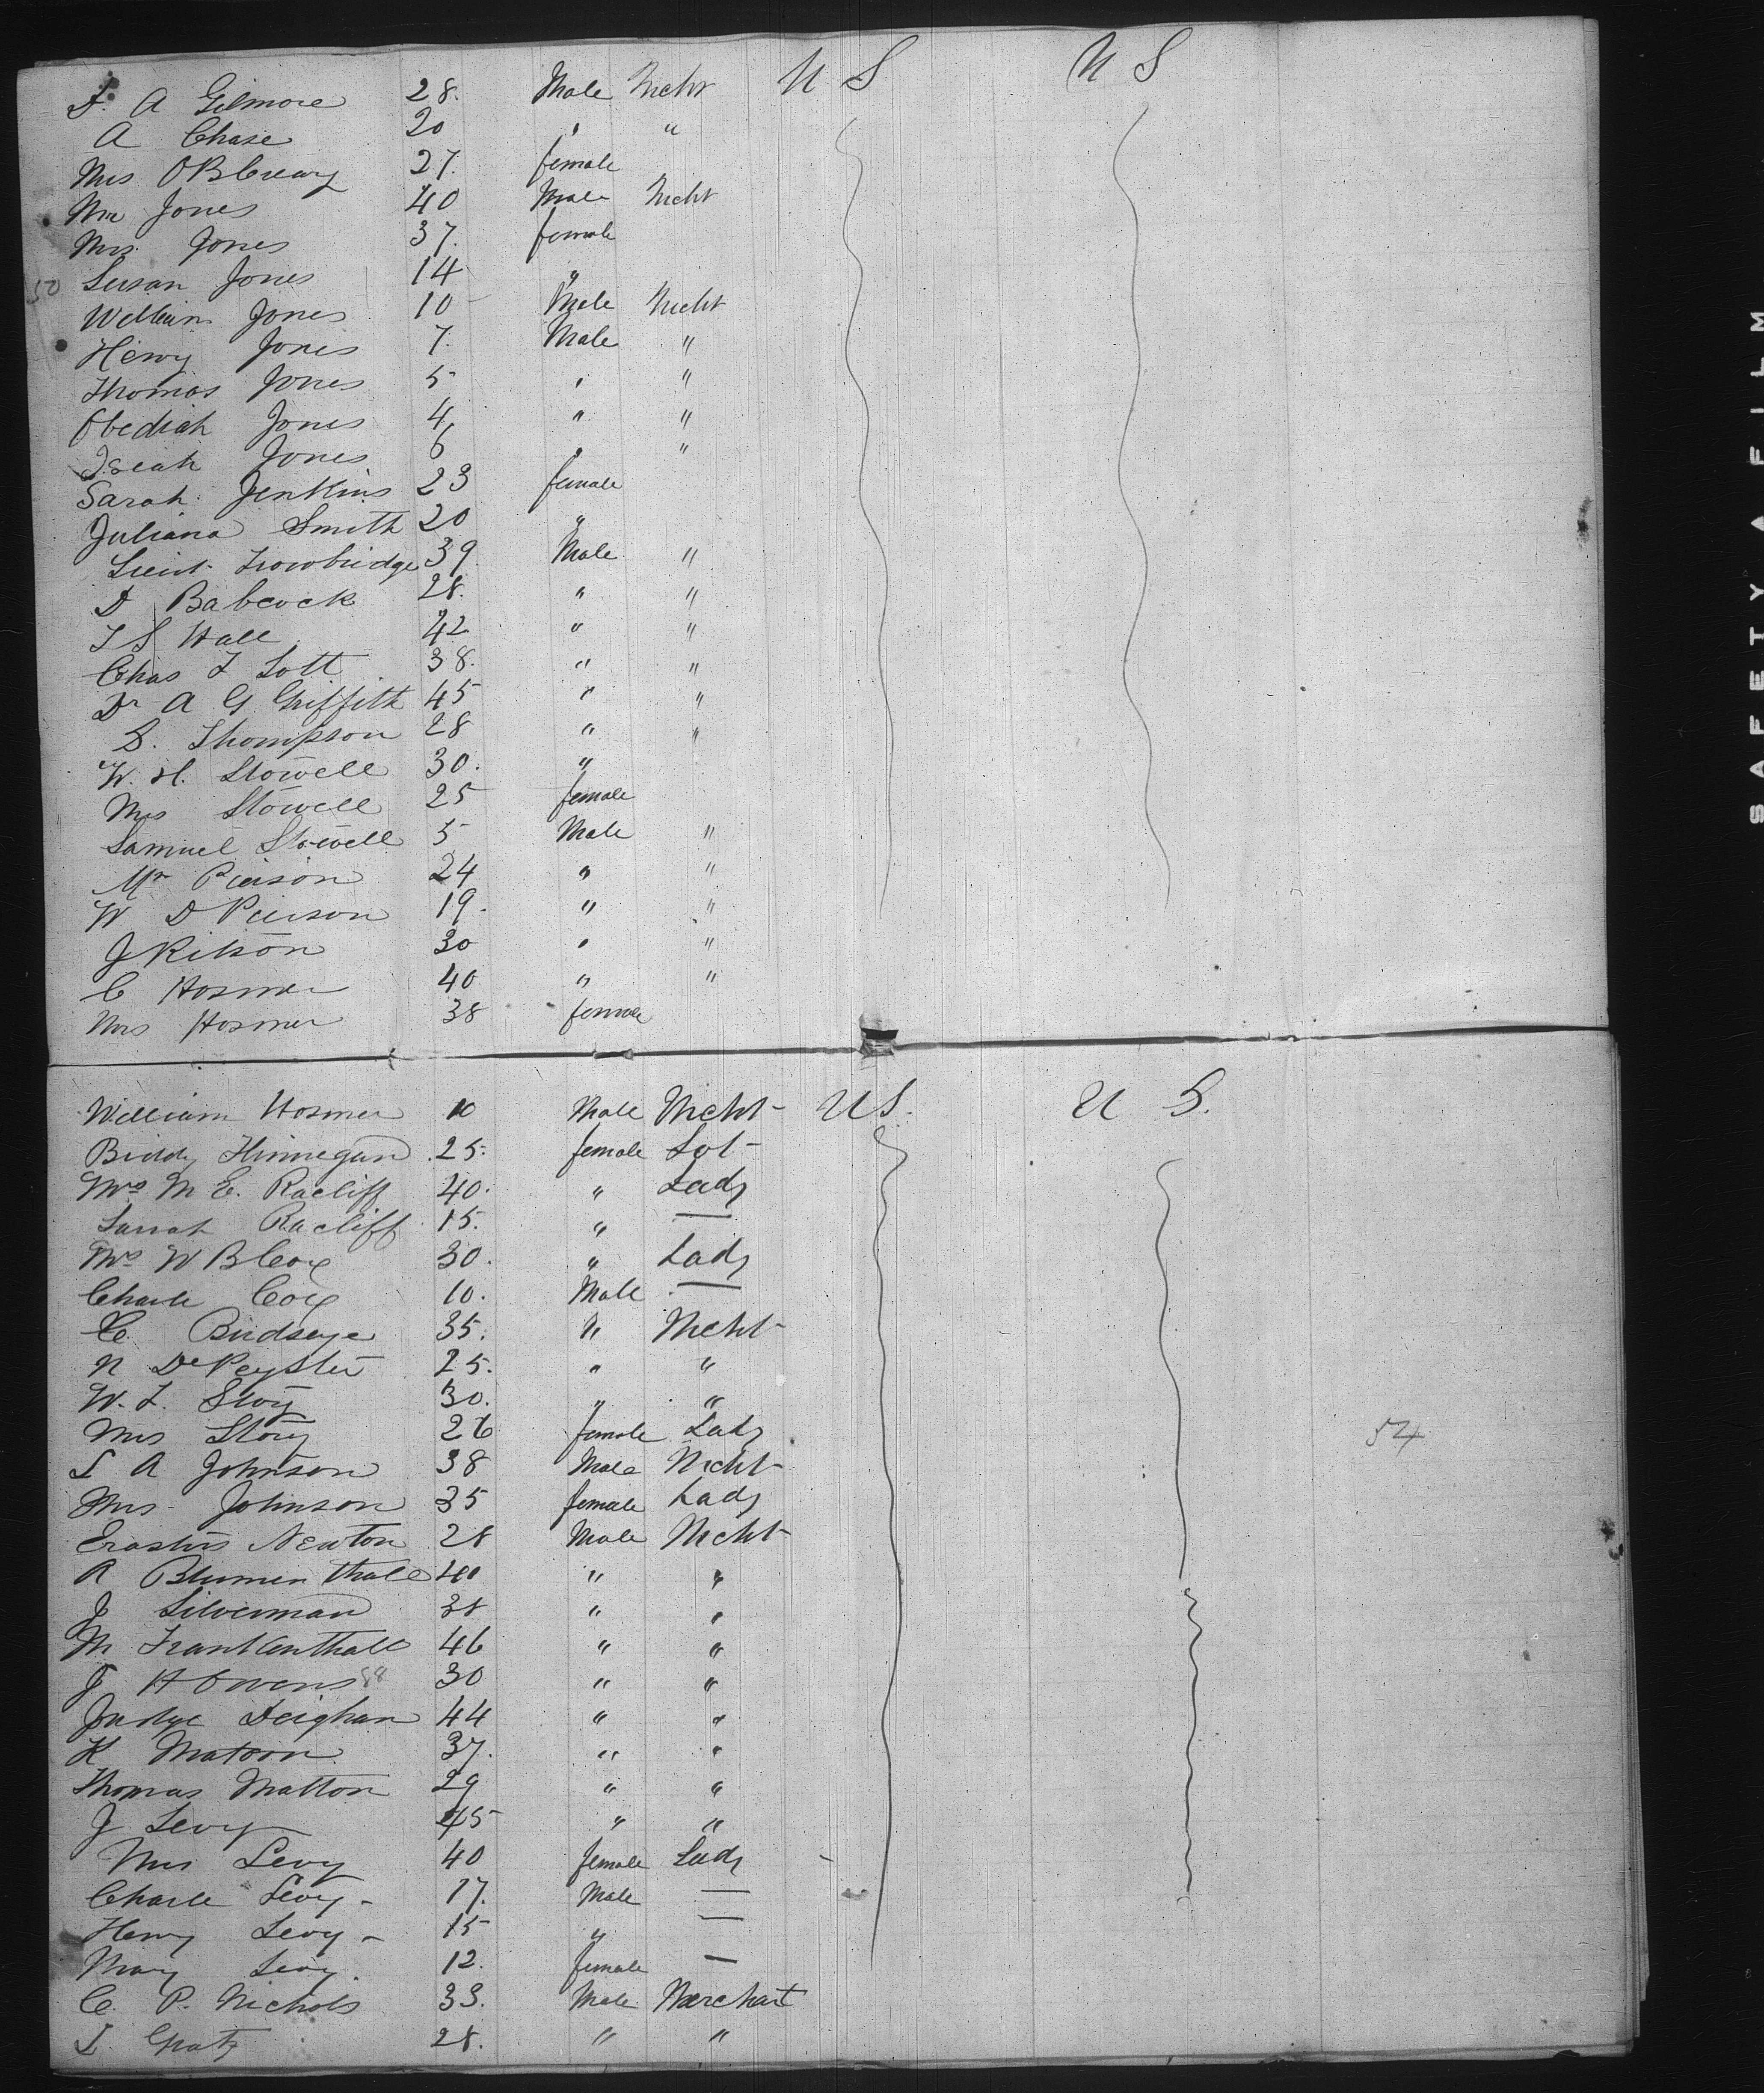 A Gilmore 28. Male Mcht U S U S
A Chase 20 " "
Mrs 27. female
Wm Jones 40 Male Mcht
Mrs Jones 37. female
50 Susan Jones 14 "
William Jones 10 Male Mcht
Henry Jones 7. Male "
Thomas Jones 5 " "
Obediah Jones 4 " "
Iseah Jones 6 " "
Sarah Jenkins 23 female
Juliana Smith 20 "
Lieut Trowbridge 39 Male "
D Babcock 28. " "
S Hall 42 " "
Chas Lott 38. " "
Dr A G Griffith 45 " "
S. Thompson 28 " "
W. H. Stowell 30. "
Mrs Stowell 25 female
Samuel Stowell 5 Male "
Mr Pierson 24 " "
W D Pierson 19. " "
J Kitson 30 " "
C Hosmer 40 " "
Mrs Hosmer 38 female
William Hosmer 10 Male Mcht U S. U S.
Biddy Hinnegan 25. female
Mrs M E. Racliff 40. " Lady
Sarrah Racliff 15. " —
Mrs W B Cox 30. " Lady
Charle Cox 10. Male —
C. Birdseye 35. " Mcht
N DePeyster 25. " "
W. Story 30. " "
Mrs Story 26 female Lady
A Johnson 38 Male Mcht
Mrs Johnson 35 female Lady
Erastus Newton 28 Male Mcht
R Blumenthall 40 " "
J Silverman 38 " "
M Frankenthall 46 " "
J H Owens 88 30 " "
Judge Deighan 44 " "
K Matoon 37. " "
Thomas Matton 29 " "
J Levy 45 " "
Mrs Levy 40 female Lady
Charle Levy 17. Male —
Henry Levy 15 " —
Mary Levy. 12. female —
C. P. Nichols 33. Male Merchant
Gratz 28. " "
54
SAFETY FILM